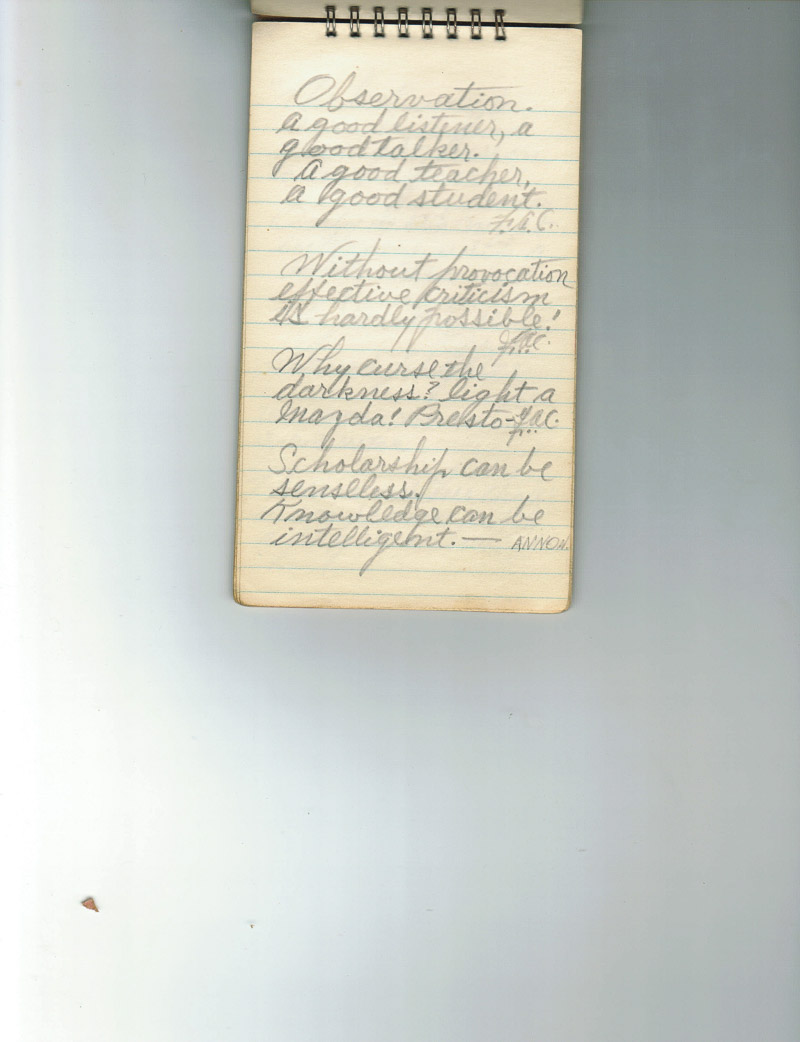 Observation.
A good listener, a
good talker.
A good teacher,
a good student.
F.A.C.
Without provocation
effective criticism
is hardly possible!
F.A.C.
Why curse the
darkness? light a
Mazda! Presto- F.A.C.
Scholarship can be
senseless.
Knowledge can be
intelligent. — ANNON.